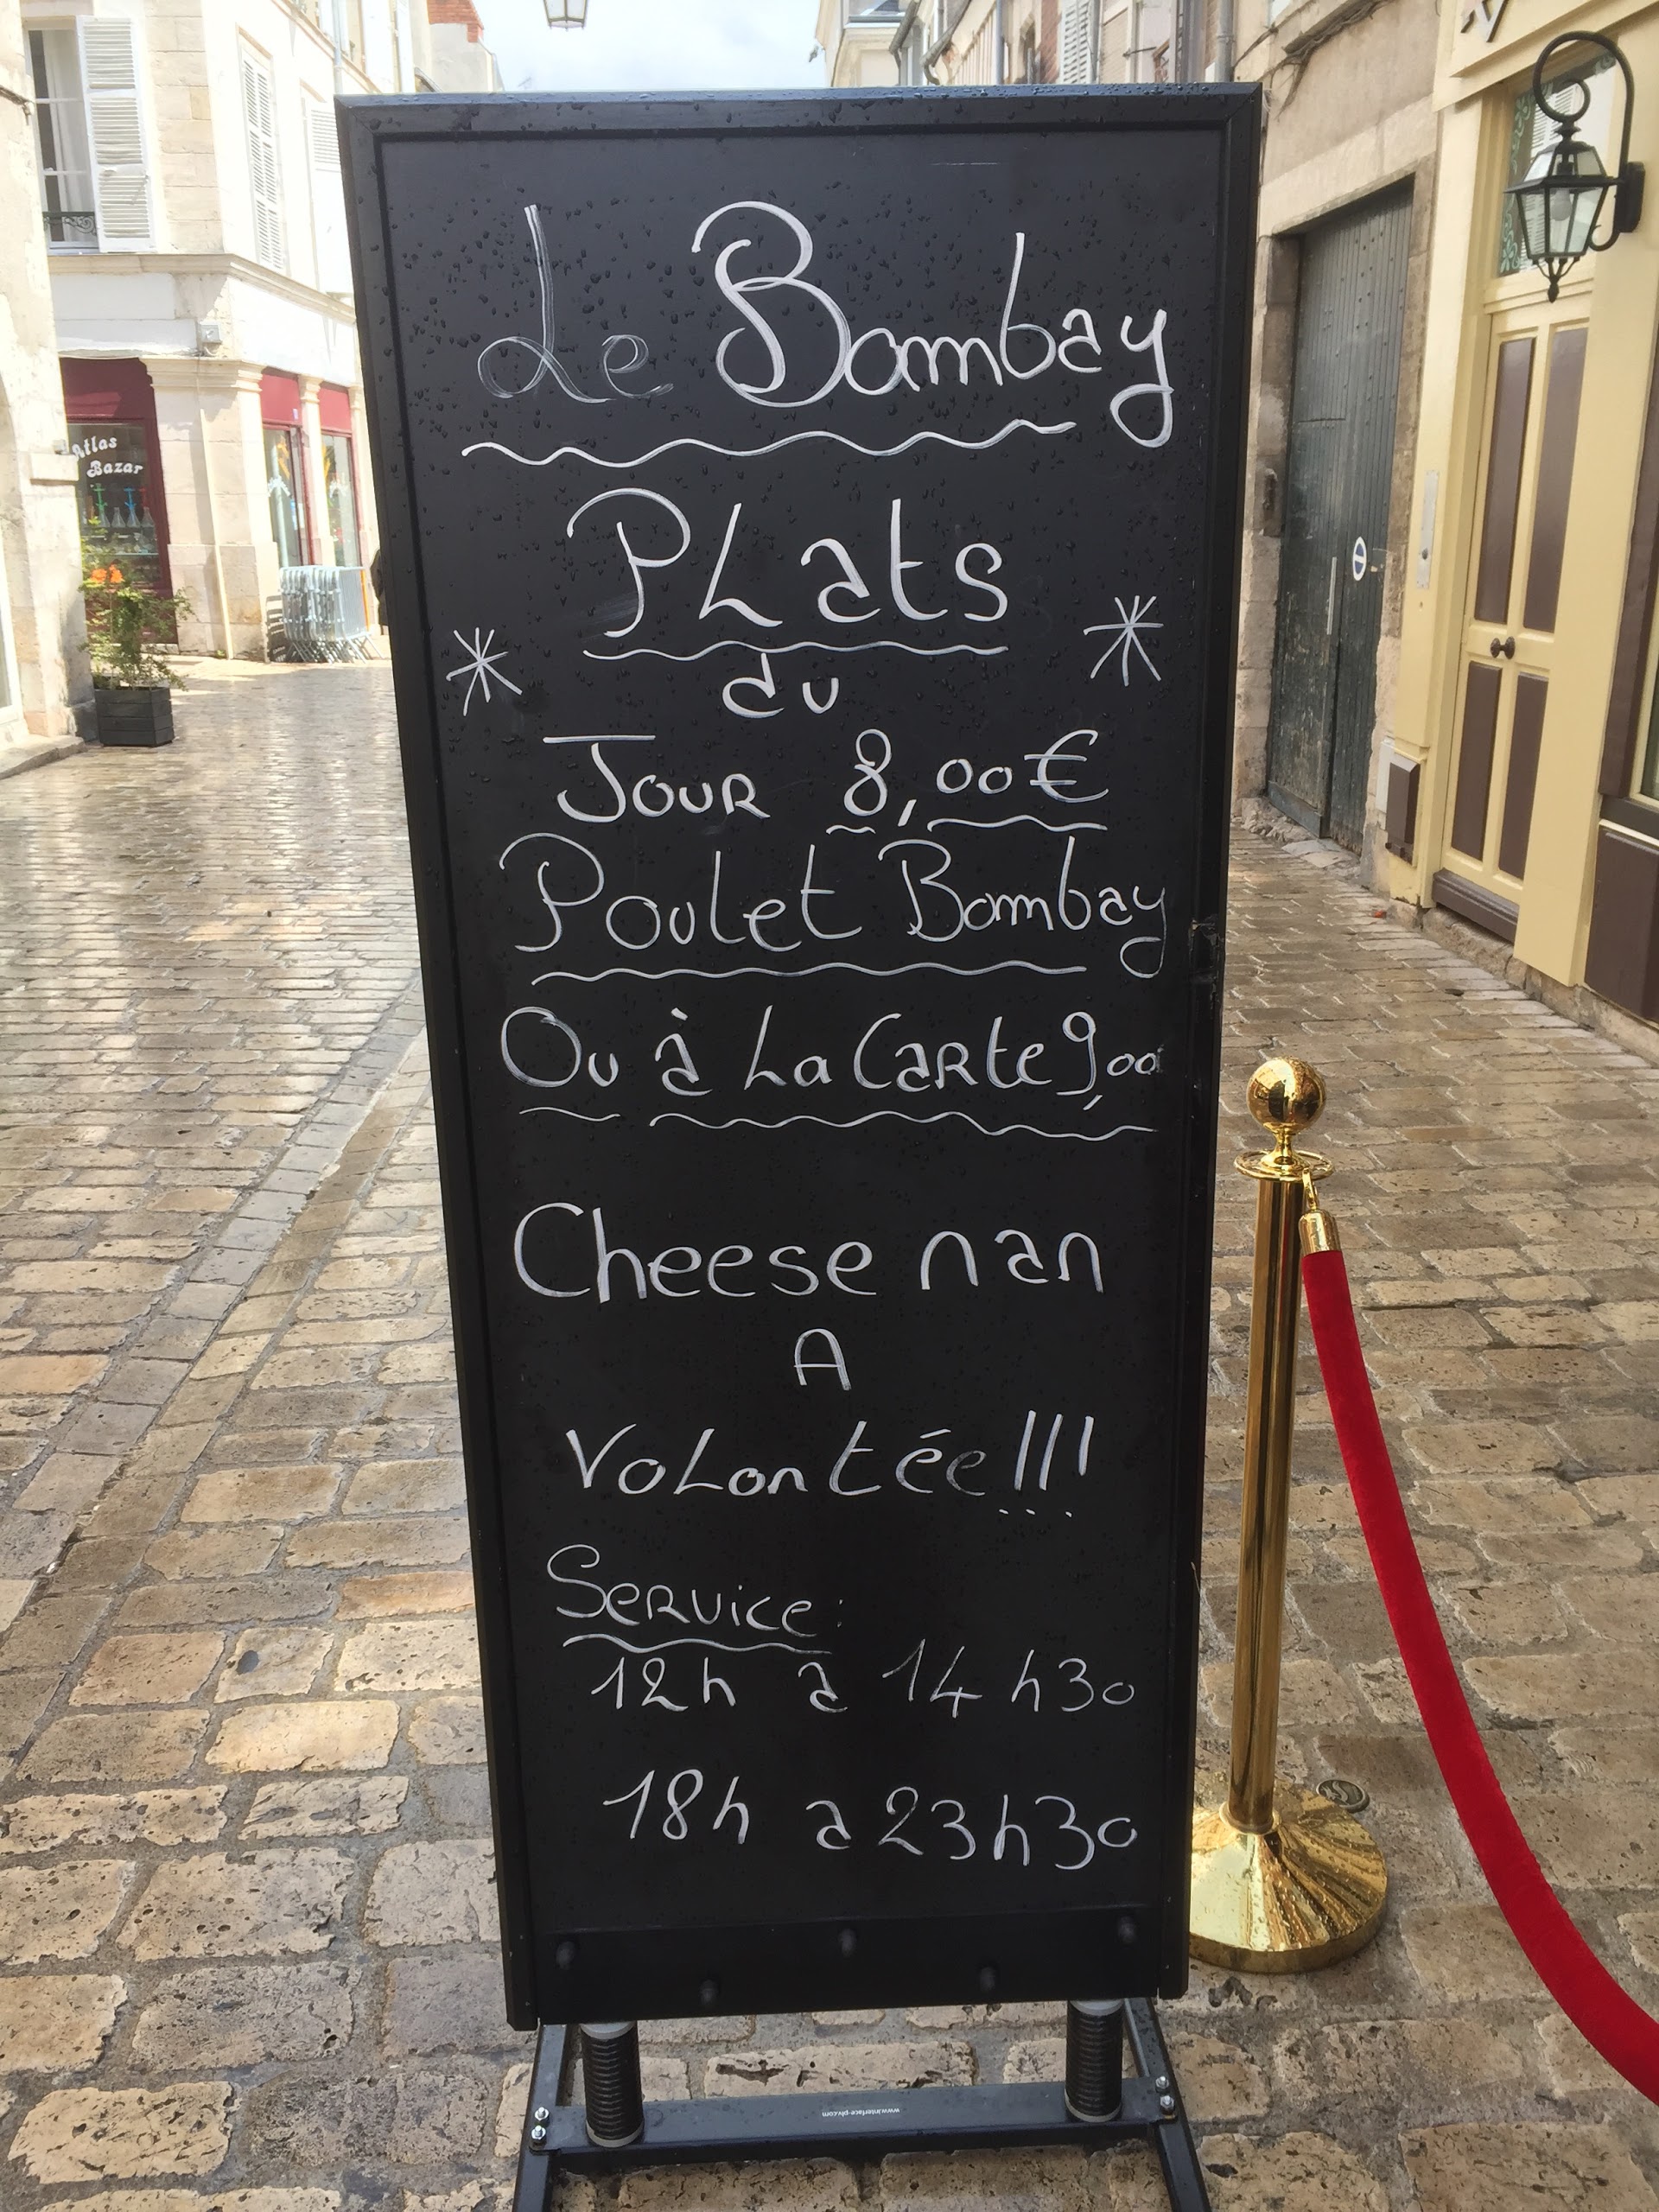 Le Bombay
PLats
du
JOUR 8,00€
Poulet Bombay
Ou à La Carte 9,00
Cheese nan
A
VoLontée!!!
Service:
12h à 14h30
18h a 23h30
Atlas
Bazar
www.interface-plv.com